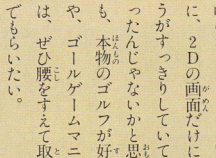 に、2Dの画面だけに
うがすっきりしていて
ったんじゃないかと思
も、本物のゴルフが好
や、ゴールゲームマニ
は、ぜひ腰をすえて取
でもらいたい。